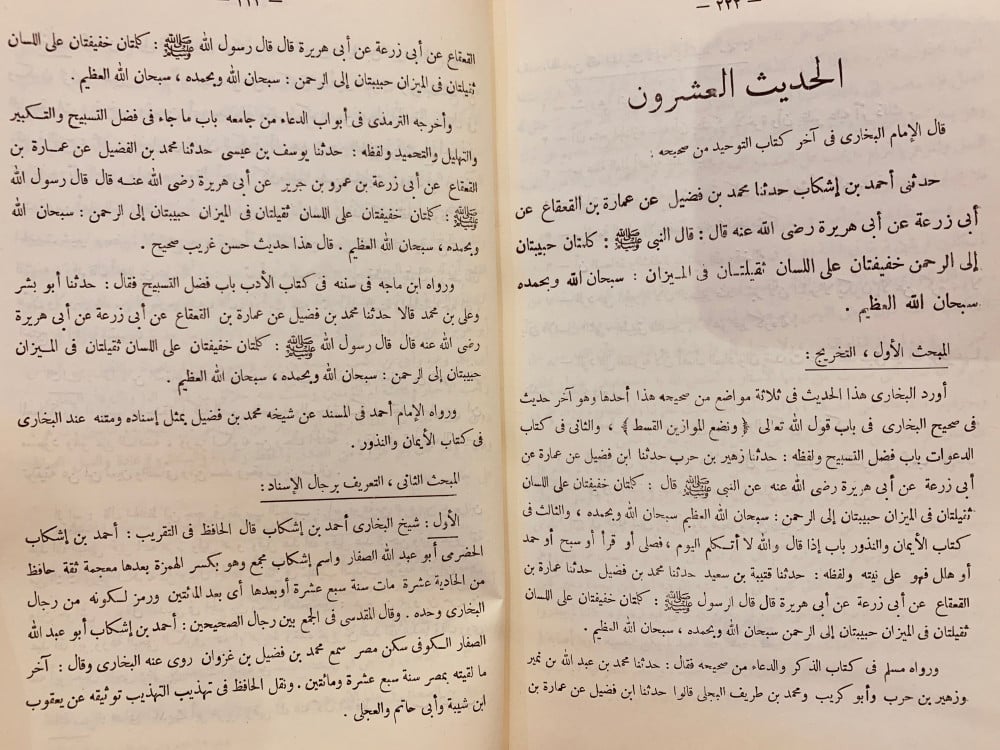 — ٢٢٢ —
الحديث العشرون
قال الإمام البخارى فى آخر كتاب التوحيد من صحيحه :
حدثنى أحمد بن إشكاب حدثنا محمد بن فضيل عن عمارة بن القعقاع عن
أبى زرعة عن أبى هريرة رضى الله عنه قال : قال النبى ﷺ : كلمتان حبيبتان
إلى الرحمن خفيفتان على اللسان ثقيلتان فى الميزان : سبحان الله وبحمده
سبحان الله العظيم .
المبحث الأول ، التخريج :
أورد البخارى هذا الحديث فى ثلاثة مواضع من صحيحه هذا أحدها وهو آخر حديث
فى صحيح البخارى فى باب قول الله تعالى ﴿ ونضع الموازين القسط ﴾ ، والثانى فى كتاب
الدعوات باب فضل التسبيح ولفظه : حدثنا زهير بن حرب حدثنا ابن فضيل عن عمارة عن
أبى زرعة عن أبى هريرة رضى الله عنه عن النبى ﷺ قال : كلمتان خفيفتان على اللسان
ثقيلتان فى الميزان حبيبتان إلى الرحمن : سبحان الله العظيم سبحان الله وبحمده ، والثالث فى
كتاب الأيمان والنذور باب إذا قال والله لا أتكلم اليوم ، فصلى أو قرأ أو سبح أو حمد
أو هلل فهو على نيته ولفظه : حدثنا قتيبة بن سعيد حدثنا محمد بن فضيل حدثنا عمارة بن
القعقاع عن أبى زرعة عن أبى هريرة قال قال الرسول ﷺ : كلمتان خفيفتان على اللسان
ثقيلتان فى الميزان حبيبتان إلى الرحمن سبحان الله وبحمده ، سبحان الله العظيم .
ورواه مسلم فى كتاب الذكر والدعاء من صحيحه فقال : حدثنا محمد بن عبد الله بن نمير
وزهير بن حرب وأبو كريب ومحمد بن طريف البجلى قالوا حدثنا ابن فضيل عن عمارة بن
القعقاع عن أبى زرعة عن أبى هريرة قال قال رسول الله ﷺ : كلمتان خفيفتان على اللسان
ثقيلتان فى الميزان حبيبتان إلى الرحمن : سبحان الله وبحمده ، سبحان الله العظيم .
وأخرجه الترمذى فى أبواب الدعاء من جامعه باب ما جاء فى فضل التسبيح والتكبير
والتهليل والتحميد ولفظه : حدثنا يوسف بن عيسى حدثنا محمد بن الفضيل عن عمارة بن
القعقاع عن أبى زرعة بن عمرو بن جرير عن أبى هريرة رضى الله عنه قال قال رسول الله
ﷺ : كلمتان خفيفتان على اللسان ثقيلتان فى الميزان حبيبتان إلى الرحمن : سبحان الله
وبحمده ، سبحان الله العظيم . قال هذا حديث حسن غريب صحيح .
ورواه ابن ماجه فى سننه فى كتاب الأدب باب فضل التسبيح فقال : حدثنا أبو بشر
وعلى بن محمد قالا حدثنا محمد بن فضيل عن عمارة بن القعقاع عن أبى زرعة عن أبى هريرة
رضى الله عنه قال قال رسول الله ﷺ : كلمتان خفيفتان على اللسان ثقيلتان فى الميزان
حبيبتان إلى الرحمن : سبحان الله وبحمده ، سبحان الله العظيم .
ورواه الإمام أحمد فى المسند عن شيخه محمد بن فضيل بمثل إسناده ومتنه عند البخارى
فى كتاب الأيمان والنذور .
المبحث الثانى ، التعريف برجال الإسناد :
الأول : شيخ البخارى أحمد بن إشكاب قال الحافظ فى التقريب : أحمد بن إشكاب
الحضرمى أبو عبد الله الصفار واسم إشكاب مجمع وهو بكسر الهمزة بعدها معجمة ثقة حافظ
من الحادية عشرة مات سنة سبع عشرة أو بعدها أى بعد المائتين ورمز لكونه من رجال
البخارى وحده . وقال المقدسى فى الجمع بين رجال الصحيحين : أحمد بن إشكاب أبو عبد الله
الصفار الكوفى سكن مصر سمع محمد بن فضيل بن غزوان روى عنه البخارى وقال : آخر
ما لقيته بمصر سنة سبع عشرة ومائتين . ونقل الحافظ فى تهذيب التهذيب توثيقه عن يعقوب
ابن شيبة وأبى حاتم والعجلى .